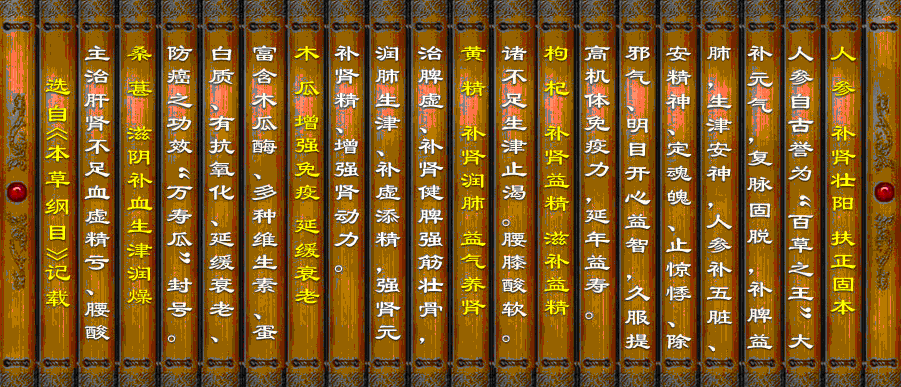 人参 补肾壮阳 扶正固本
人参自古誉为“百草之王”大
补元气，复脉固脱，补脾益
肺，生津安神，人参补五脏、
安精神、定魂魄、止惊悸、除
邪气、明目开心益智，久服提
高机体免疫力，延年益寿。
枸杞 补肾益精 滋补益精
诸不足生津止渴。腰膝酸软。
黄精 补肾润肺 益气养肾
治脾虚、补肾健脾强筋壮骨，
润肺生津、补虚添精，强肾元
补肾精、增强肾动力。
木瓜 增强免疫 延缓衰老
富含木瓜酶、多种维生素、蛋
白质、有抗氧化、延缓衰老、
防癌之功效“万寿瓜”封号。
桑葚 滋阴补血生津润燥
主治肝肾不足血虚精亏、腰酸
选自《本草纲目》记载